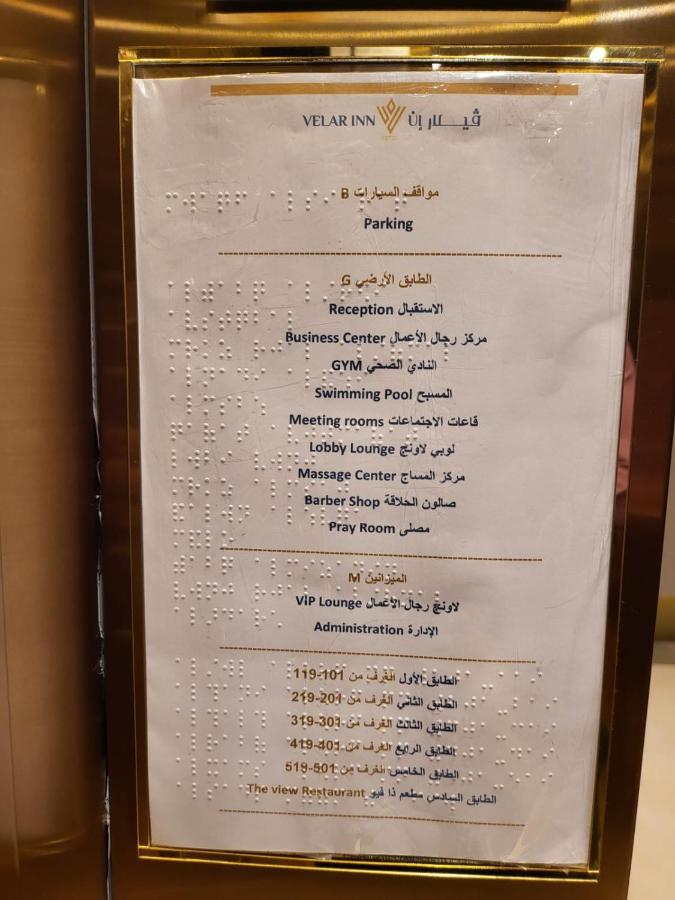 VELAR INN ڤيـلار إن
مواقف السيارات B
Parking
الطابق الأرضي G
الاستقبال Reception
مركز رجال الأعمال Business Center
النادي الصحي GYM
المسبح Swimming Pool
قاعات الاجتماعات Meeting rooms
لوبي لاونج Lobby Lounge
مركز المساج Massage Center
صالون الحلاقة Barber Shop
مصلى Pray Room
الميزانين M
لاونج رجال الأعمال ViP Lounge
الإدارة Administration
الطابق الأول الغرف من 101-119
الطابق الثاني الغرف من 201-219
الطابق الثالث الغرف من 301-319
الطابق الرابع الغرف من 401-419
الطابق الخامس الغرف من 501-519
الطابق السادس مطعم ذا فيو The view Restaurant